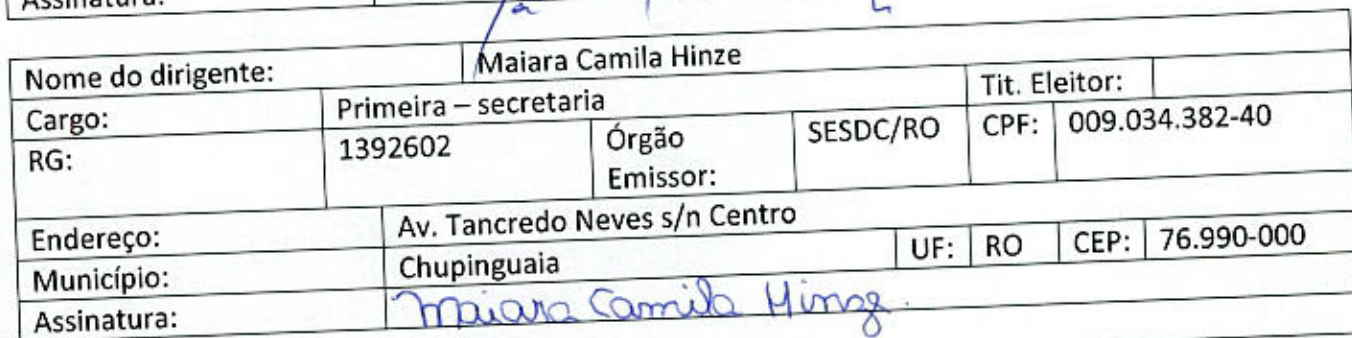 Assinatura:
Nome do dirigente: Maiara Camila Hinze
Cargo: Primeira – secretaria Tit. Eleitor:
RG: 1392602 Órgão Emissor: SESDC/RO CPF: 009.034.382-40
Endereço: Av. Tancredo Neves s/n Centro
Município: Chupinguaia UF: RO CEP: 76.990-000
Assinatura: Maiara Camila Hinze.